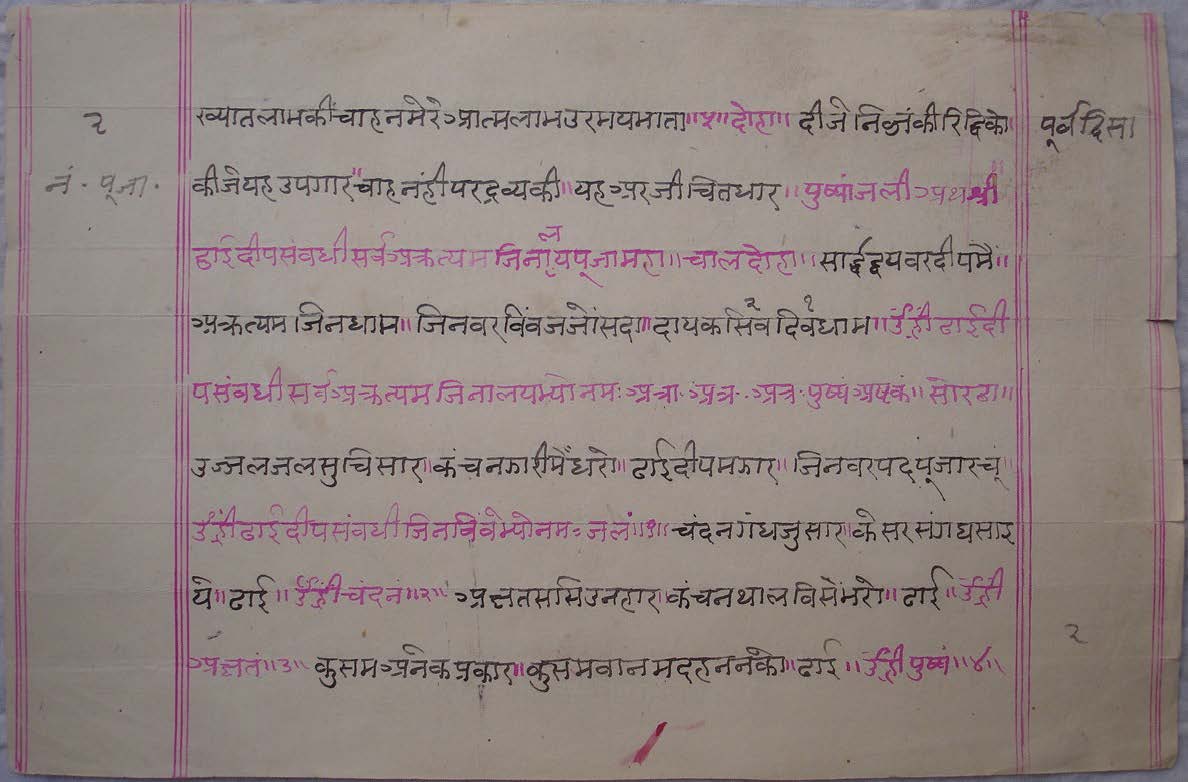 २
नं. पूजा.
पूर्व दिसा
ख्यातलाभकी चाह न मेरे आत्मलाभ उर मय माता॥५॥ दोहा॥ दीजे निजंकी रिद्धि को॥
कीजे यह उपगार॥ चाह नंही परद्रव्यकी॥ यह अरजी चितधार॥ पुष्पांजली अथ श्री
ढाई दीप संवधी सर्व अक्रत्यम जिनालय पूजा महा॥ चाल दोहा॥ सार्द्ध द्वय वर दीपमैं॥
अक्रत्यम जिनधाम॥ जिनवर विंव जजों सदा॥ दायक सिव२ दिव१ धाम॥ उँ ह्री ढाई दी
प संवधी सर्व अक्रत्यम जिनालयभ्यो नमः अत्रा. अत्र. अत्र. पुष्पं अष्टकं॥ सोरठा॥
उज्जल जल सुचि सार॥ कंचन झारीमैं धरो॥ ढाई दीप मझार॥ जिनवर पद पूजा रचूं॥
उँ ह्री ढाई दीप संवधी जिनविंवेभ्यो नमः जलं॥१॥ चंदन गंध जु सार॥ केसर संग घसाइ
ये॥ ढाई॥ उँ ह्री चंदनं॥२॥ अक्षत ससि उनहार॥ कंचन थाल विसें भरो॥ ढाई॥ उँ ह्री
अक्षतं॥३॥ कुसम अनेक प्रकार॥ कुसमवान मद हननको॥ ढाई॥ उँ ह्री पुष्पं॥४॥
२